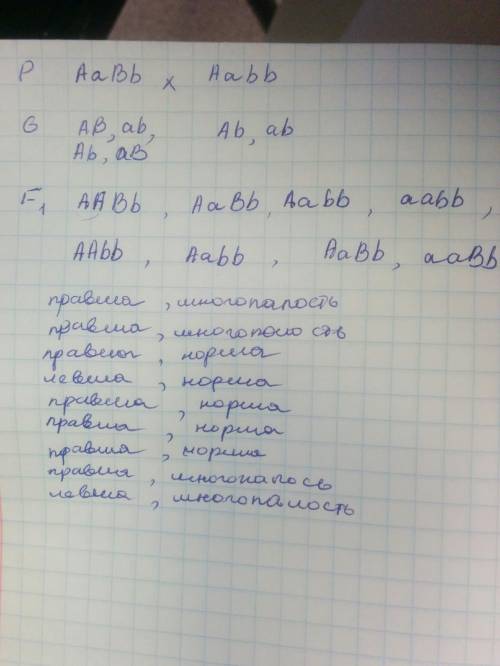 P AaBb x Aabb
G AB, ab, Ab, ab
Ab, aB
F1 AABb, AaBb, Aabb, aabb,
AAbb, Aabb, AaBb, aaBb
правша, многопалость
правша, многопалость
правша, норма
левша, норма
правша, норма
правша, норма
правша, норма
правша, многопалось
левша, многопалость